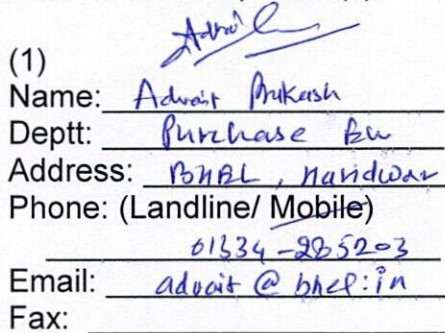 (1)
Name: Advait Prakash
Deptt: Purchase
Address: BHEL, Haridwar
Phone: (Landline/ Mobile)
01334-285203
Email: advait @ bhel.in
Fax: